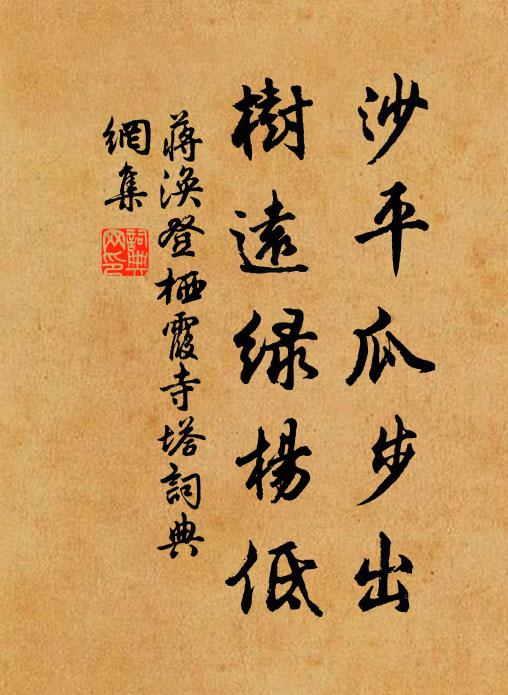 沙平瓜步出
樹遠綠楊低
蔣渙登栖霞寺塔詞典
網集
詞典網印